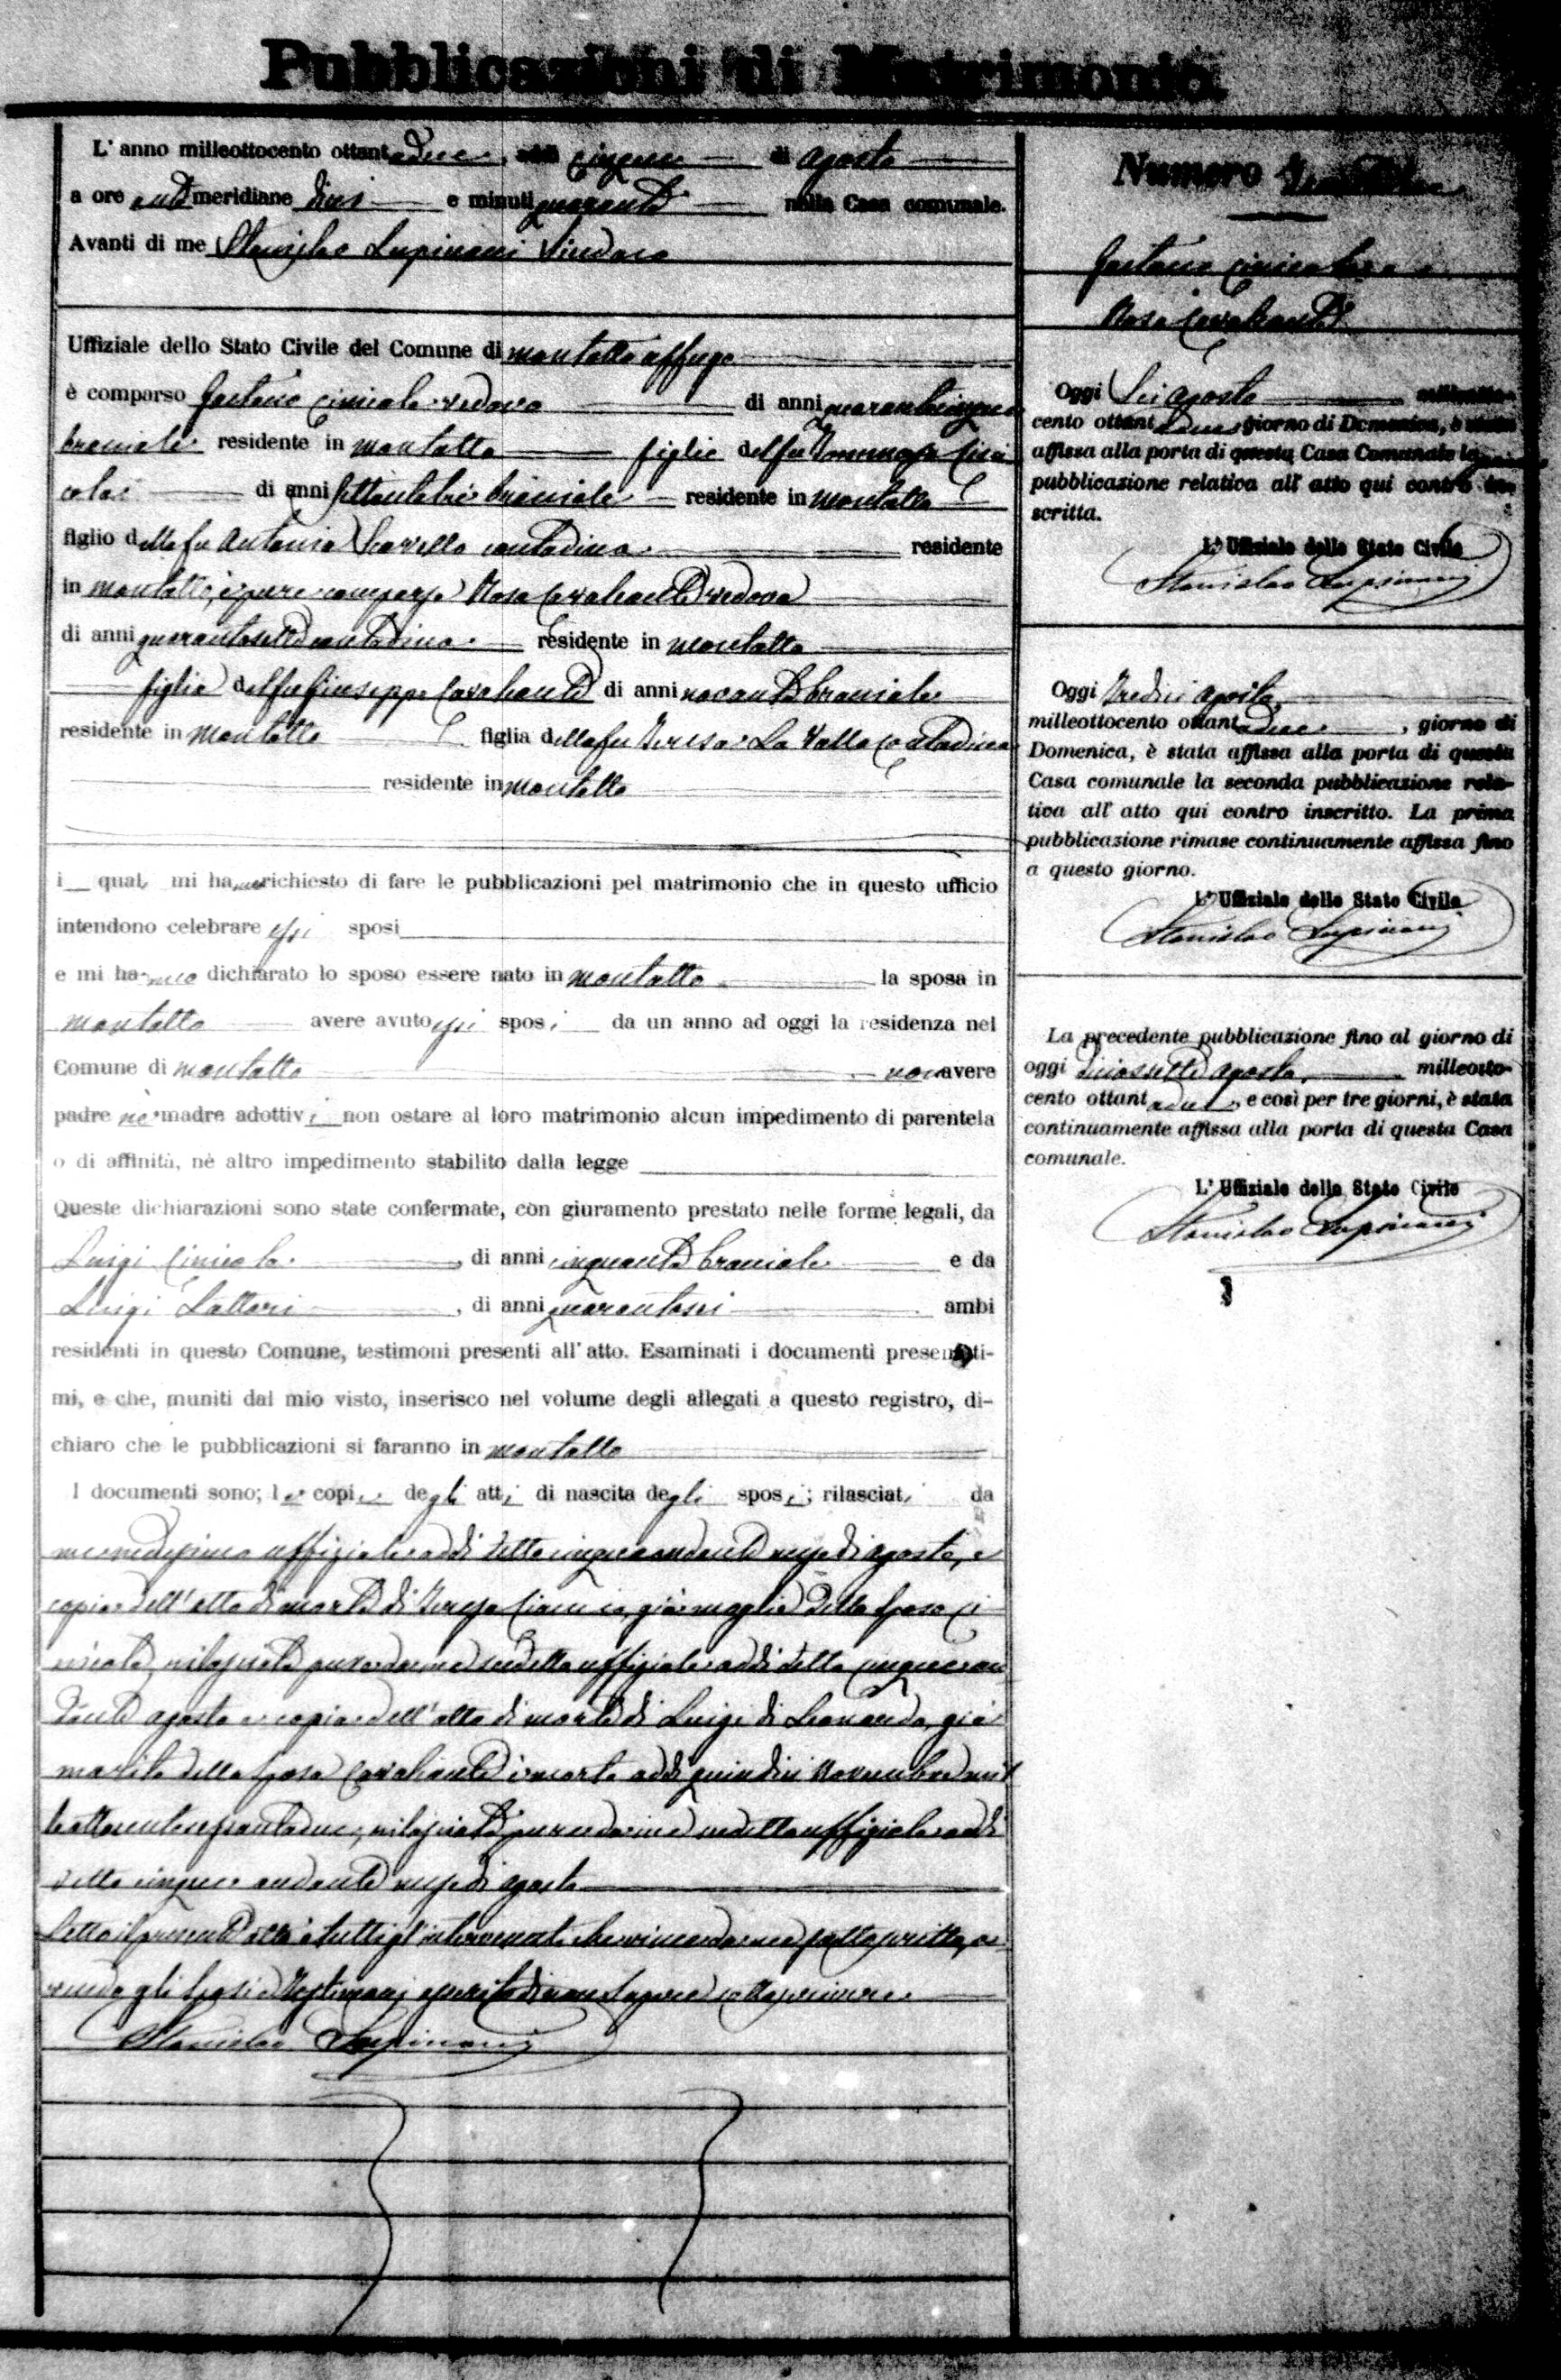 Pubblicazioni di Matrimonio
L'anno milleottocento ottantadue, addì cinque di Agosto
a ore antimeridiane dieci e minuti quaranta nella Casa comunale.
Avanti di me Stanislao Lupinacci Sindaco
Uffiziale dello Stato Civile del Comune di Montalto Uffugo
è comparso Gaetano Cinicola vedovo di anni quarantacinque
bracciale residente in Montalto figlio del fu Tommaso Cini
cola di anni settantatrè bracciale residente in Montalto
figlio della fu Antonia Scavello contadina residente
in Montalto, è pure comparsa Rosa Cavalcante vedova
di anni quarantasette contadina residente in Montalto
figlia del fu Giuseppe Cavalcante di anni novanta bracciale
residente in Montalto figlia della fu Teresa La Valle contadina
residente in Montalto
i quali mi hanno richiesto di fare le pubblicazioni pel matrimonio che in questo ufficio
intendono celebrare essi sposi
e mi hanno dichiarato lo sposo essere nato in Montalto la sposa in
Montalto avere avuto essi sposi da un anno ad oggi la residenza nel
Comune di Montalto non avere
padre nè madre adottivi non ostare al loro matrimonio alcun impedimento di parentela
o di affinità, nè altro impedimento stabilito dalla legge
Queste dichiarazioni sono state confermate, con giuramento prestato nelle forme legali, da
Luigi Cinicola, di anni cinquanta bracciale e da
Luigi Lattari, di anni quarantasei ambi
residenti in questo Comune, testimoni presenti all'atto. Esaminati i documenti presentati-
mi, e che, muniti dal mio visto, inserisco nel volume degli allegati a questo registro, di-
chiaro che le pubblicazioni si faranno in Montalto
I documenti sono; le copie degli atti di nascita degli sposi; rilasciati da
me medesimo uffiziale addì detto cinque andante mese di Agosto, e
copia dell'atto di morte di Teresa già moglie dello sposo Ci
nicola, rilasciata pure da me sudetto uffiziale addì detto cinque an
dante Agosto e copia dell'atto di morte di Luigi di Leonardo, già
marito della sposa Cavalcante morto addì quindici Novembre mil
leottocento rilasciata pure da me sudetto uffiziale addì
detto cinque andante mese di Agosto
Letto il presente atto a tutti gl'intervenuti sottoscritto, a
vendo gli sposi e testimoni asserito di non sapere sottoscrivere
Stanislao Lupinacci
Numero
Gaetano Cinicola e
Rosa Cavalcante
Oggi Sei Agosto milleotto-
cento ottantadue giorno di Domenica, è stata
affissa alla porta di questa Casa Comunale la prima
pubblicazione relativa all'atto qui contro in-
scritta.
L'Uffiziale dello Stato Civile
Stanislao Lupinacci
Oggi Tredici Agosto,
milleottocento ottantadue, giorno di
Domenica, è stata affissa alla porta di questa
Casa comunale la seconda pubblicazione rela-
tiva all'atto qui contro inscritto. La prima
pubblicazione rimase continuamente affissa fino
a questo giorno.
L'Uffiziale dello Stato Civile
Stanislao Lupinacci
La precedente pubblicazione fino al giorno di
oggi diciassette Agosto, milleotto-
cento ottantadue, e così per tre giorni, è stata
continuamente affissa alla porta di questa Casa
comunale.
L'Uffiziale dello Stato Civile
Stanislao Lupinacci